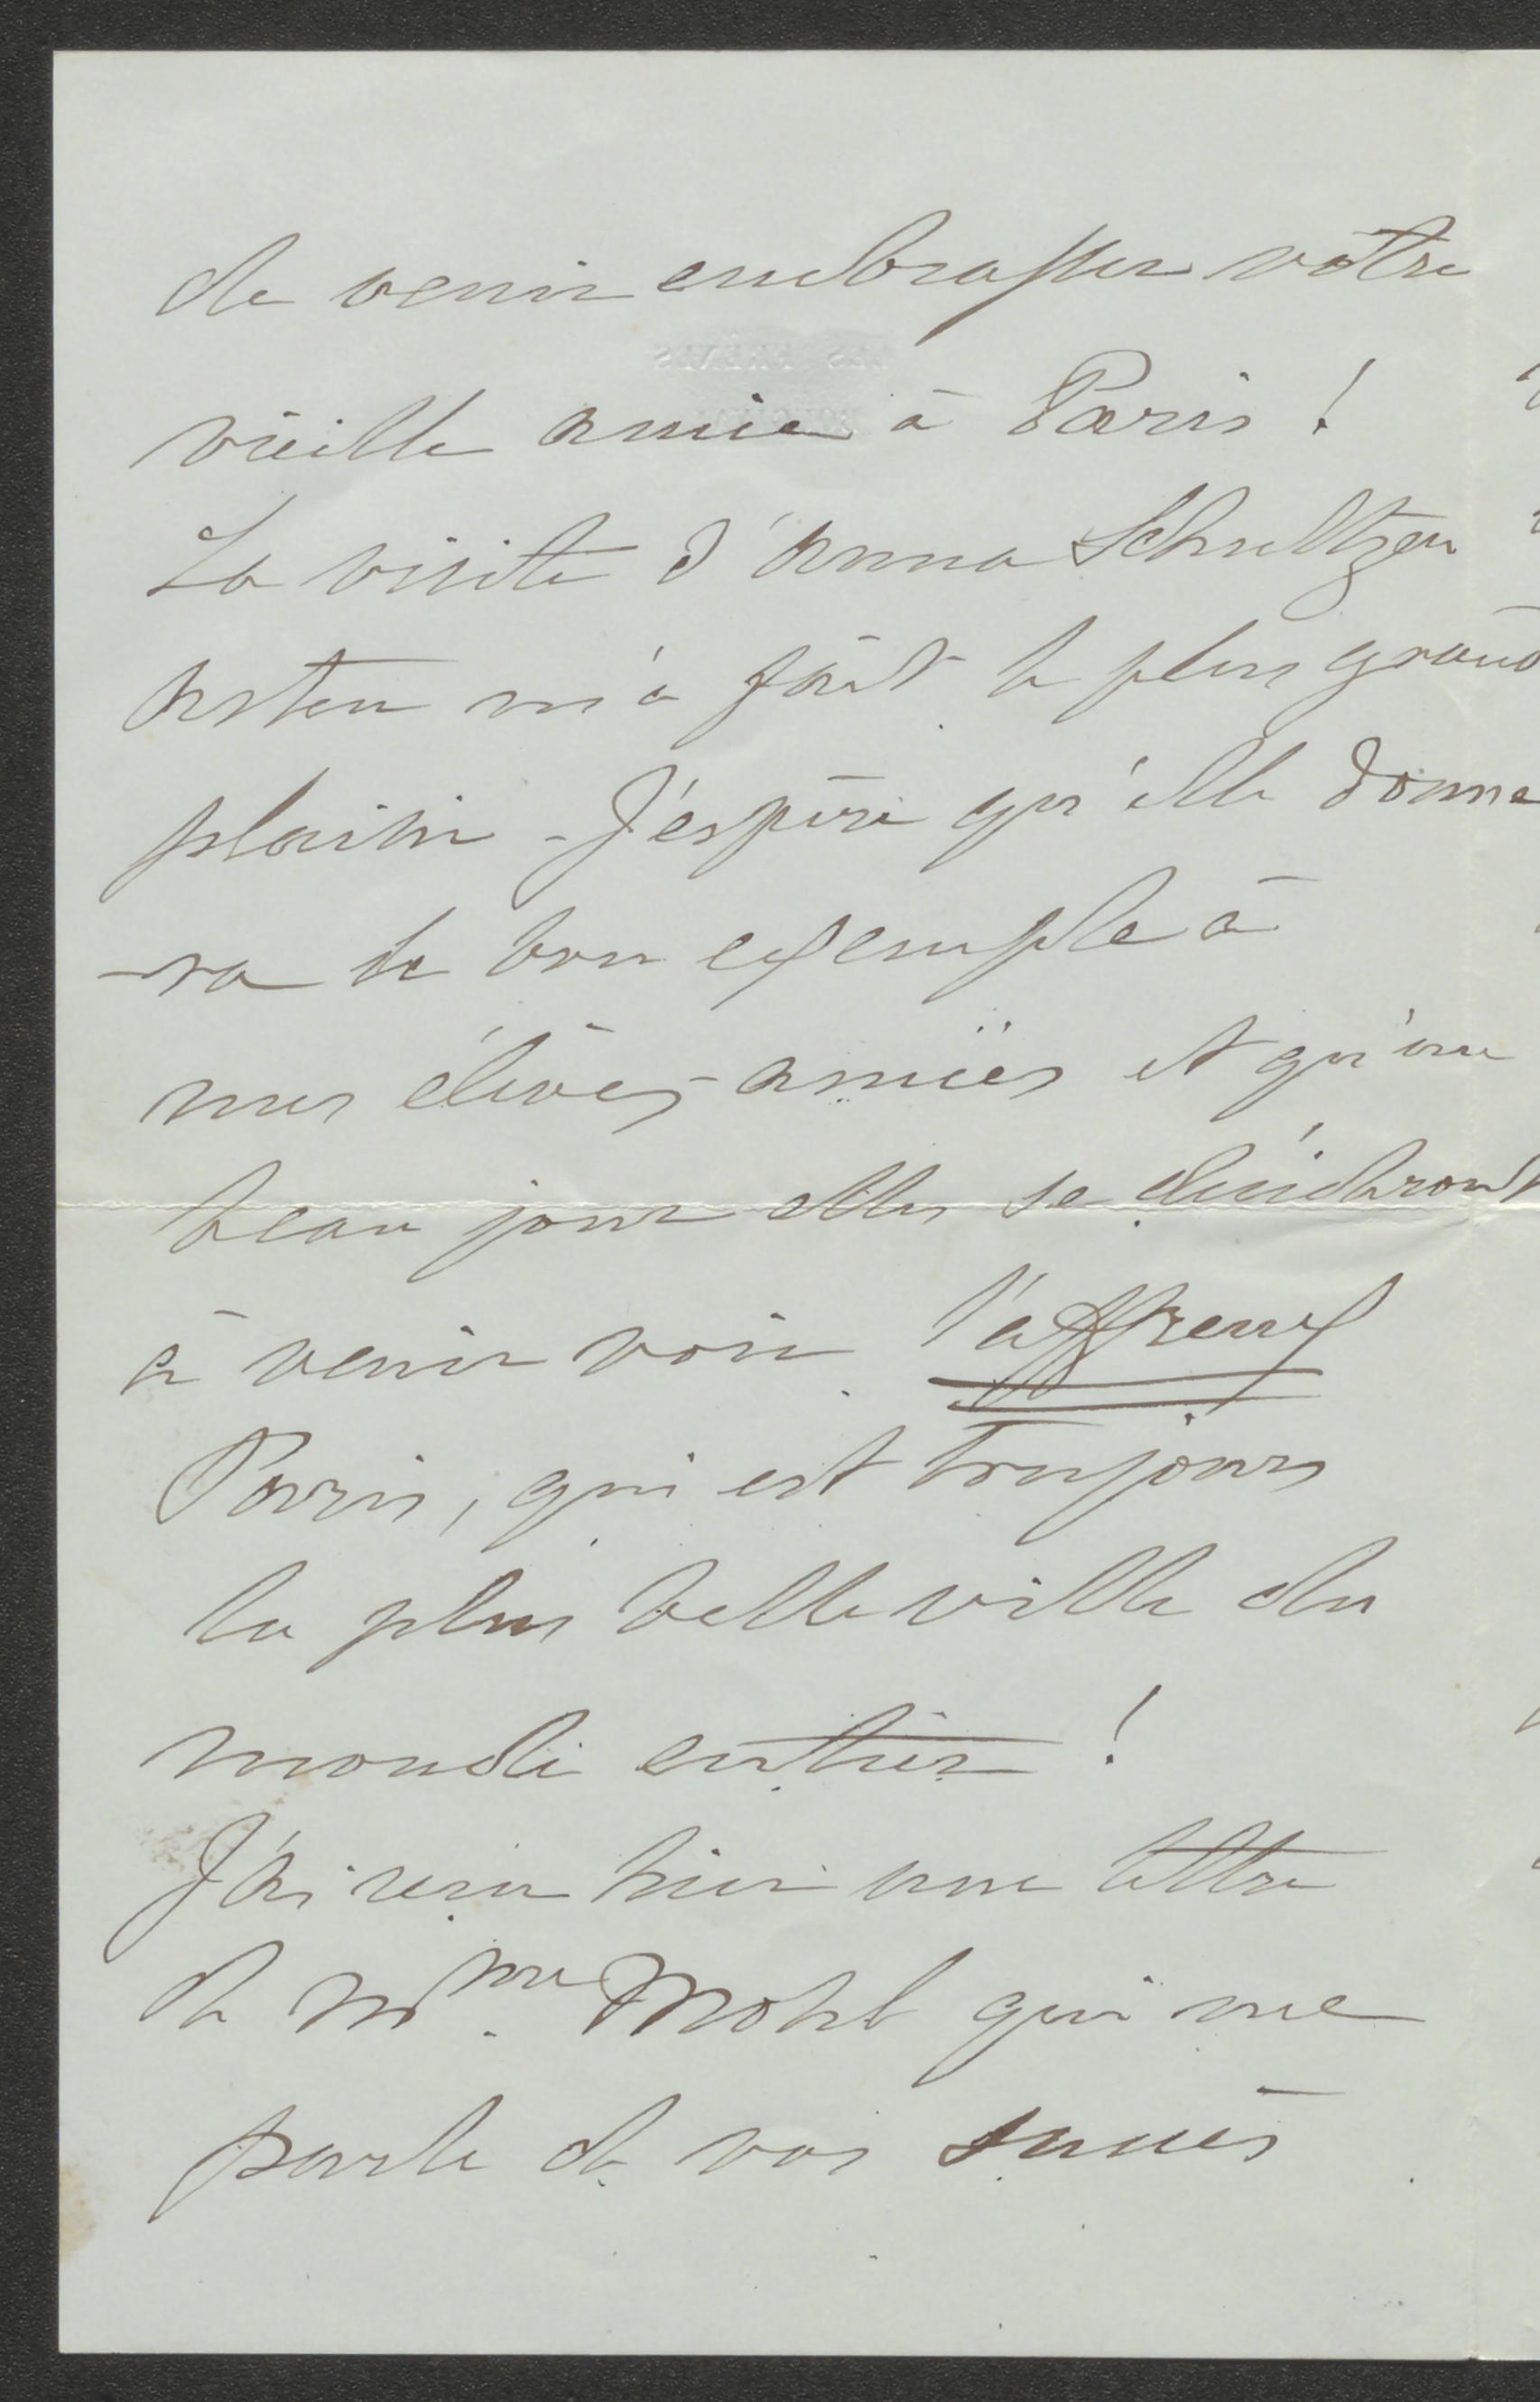 de venir embrasser votre
LES FRÊNES
BOUGIVAL
vieille amie à Paris !
La visite d'Anna Schultzen
Asten m'a fait le plus grand
plaisir - J'espère qu'elle donne
-ra le bon exemple à
mes élèves-amies et qu'un
beau jour elles se décideront
à venir voir l'affreux
Paris, qui est toujours
la plus belle ville du
monde entier !
J'ai reçu hier une lettre
de Mme Mohl qui me
parle de vos succès